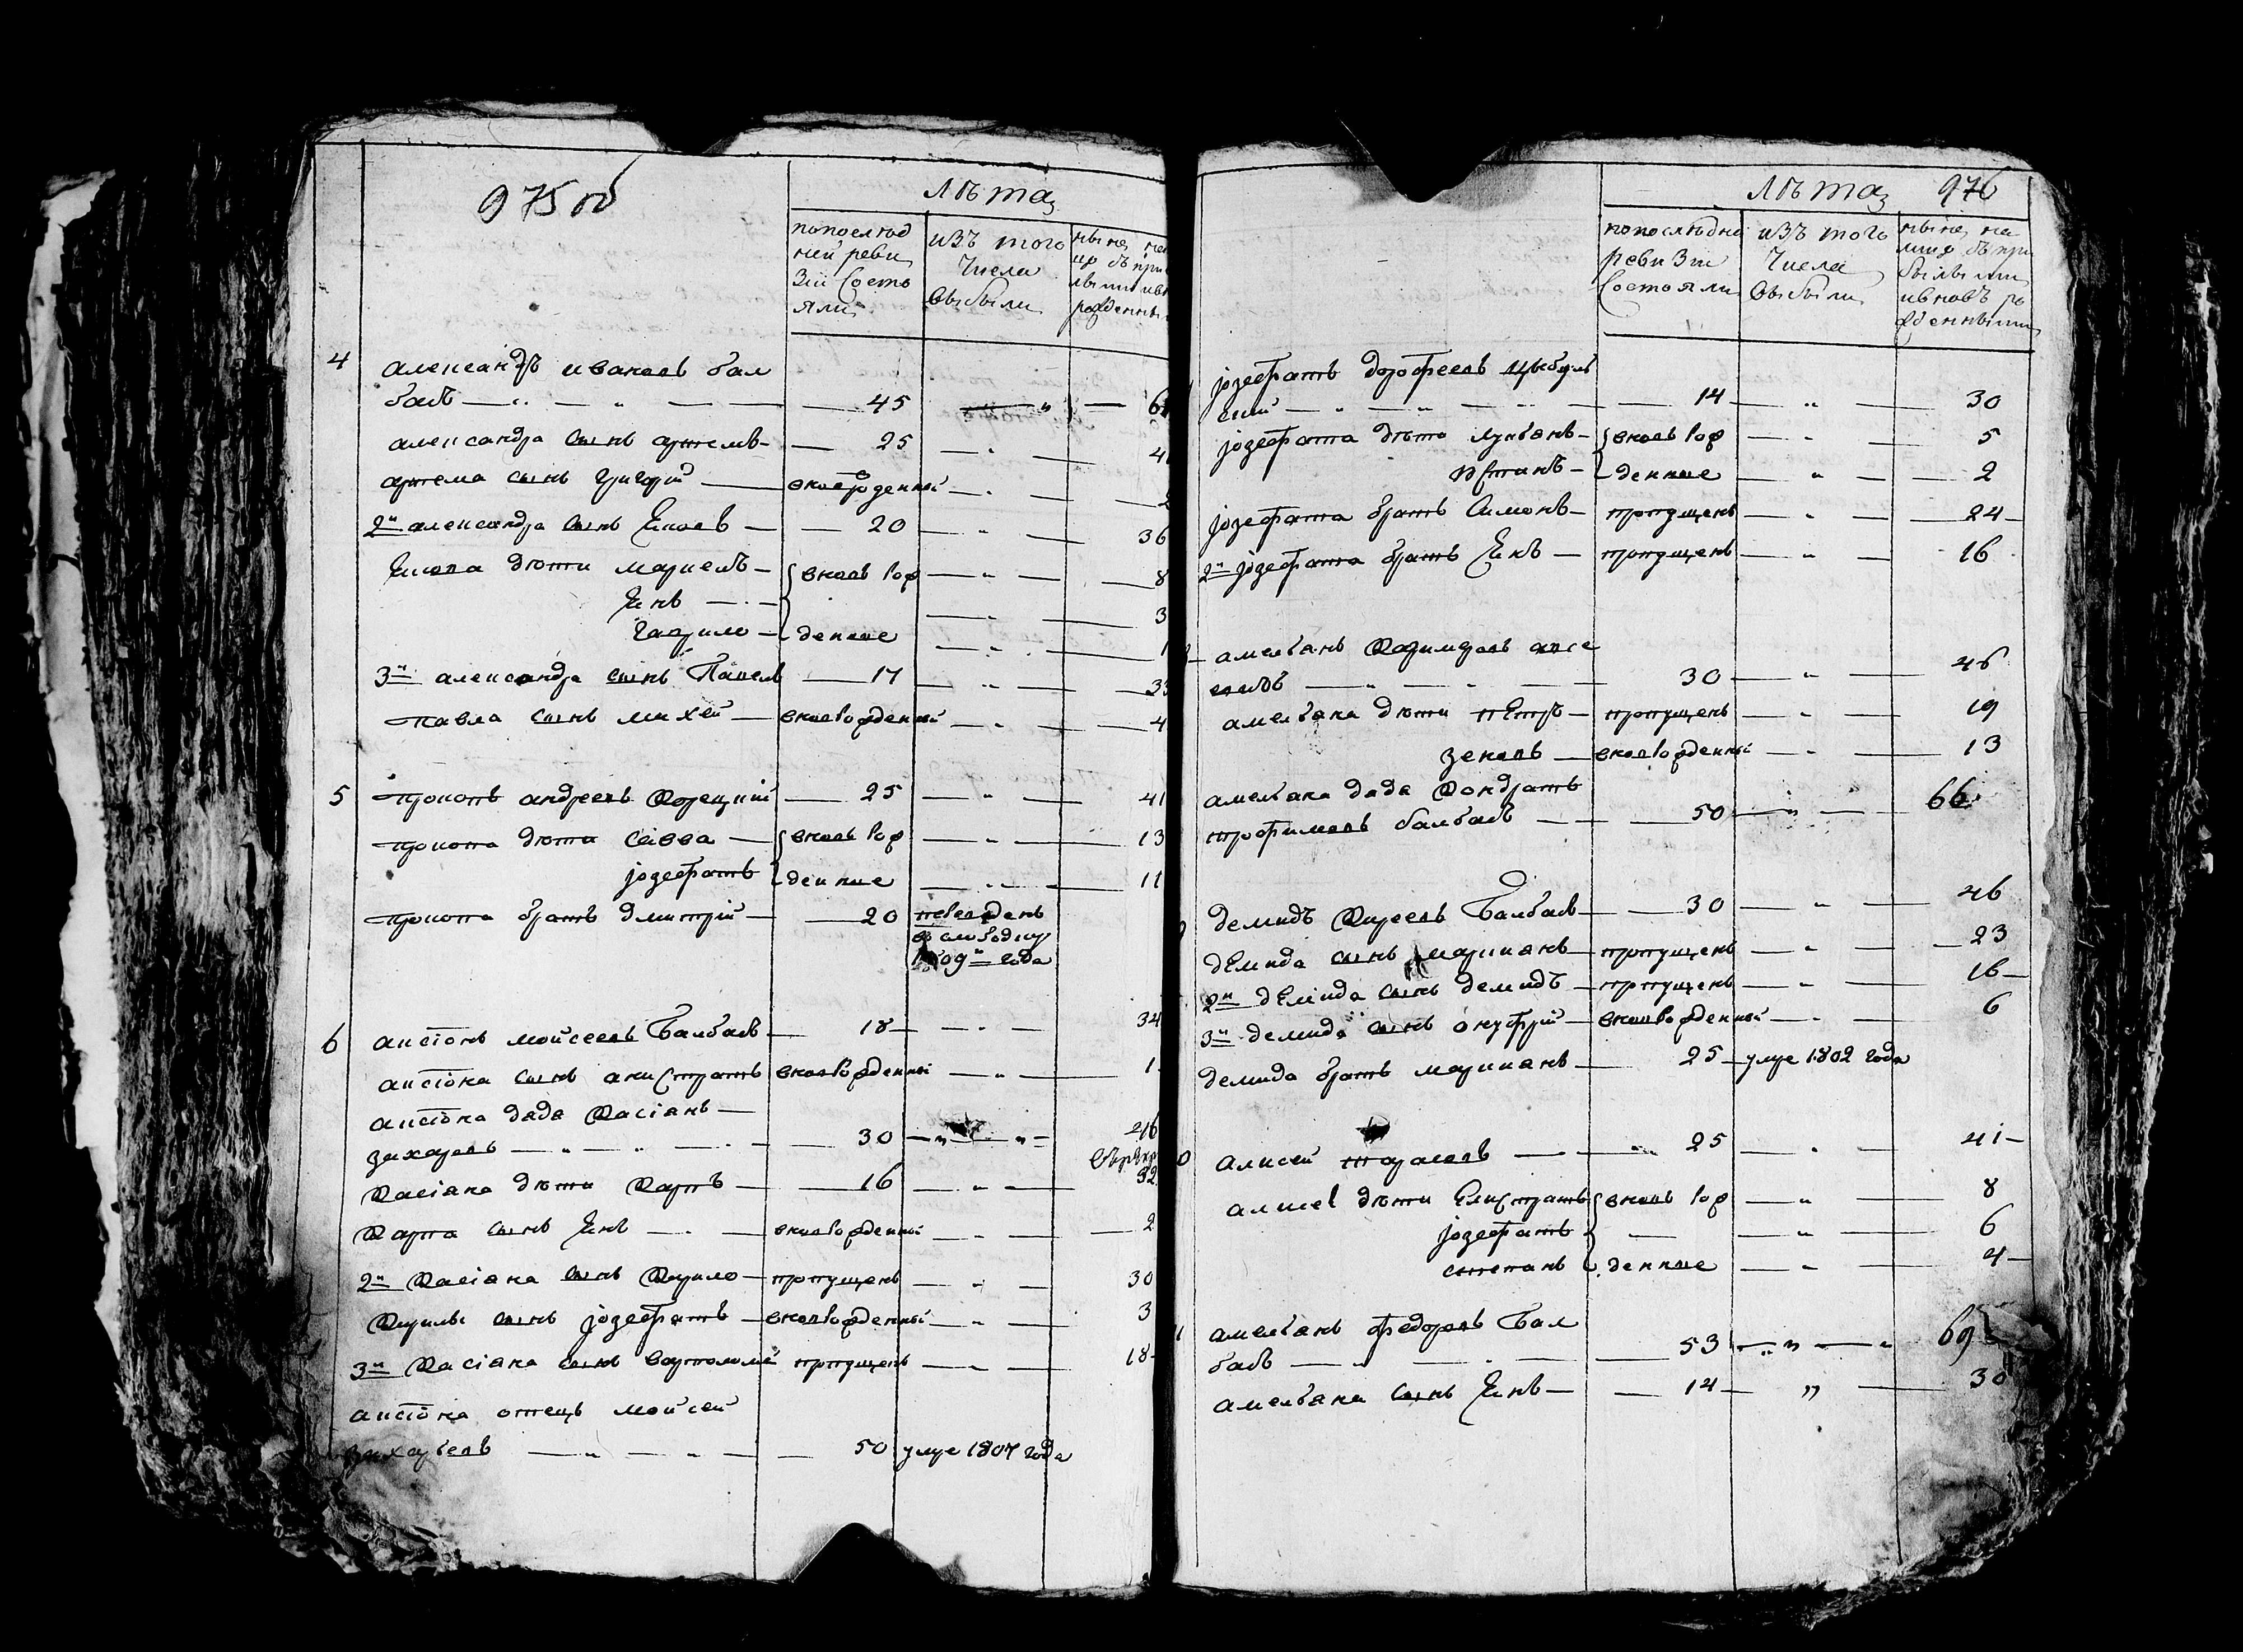 975 об
лѣта
попослѣд
ней реви
зіи состо
яли
изъ того
числа
выбыли
нынѣ на
4
александръ ивановъ бал
басъ 45
александра сынъ артемъ 25
артема сынъ григорій вновьрожденной
2й александра сынъ Яковъ 20 36
Якова дѣти маркелъ вновь рож 8
Янъ 3
гаврило денные 1
3й александра сынъ Павелъ 17
павла сынъ михей вновьрожденной 4
5 прокопъ андреевъ Корецкий 25 41
прокопа дѣти савва вновь рож 13
іозефатъ денные 11
прокопа братъ дмитрій 20 переведенъ
въ слободку
1809го года
6 антонъ мойсеевъ Балбасъ 18 34
антона сынъ анистратъ вновьрожденны 1
антона дядя Касіанъ
захаровъ 30 46
Касіана дѣти Карпъ 16 32
Карпа сынъ Янъ вновьрожденный 2
2й Касіана сынъ Кирило пропущенъ 30
Кирилы сынъ іозефатъ вновьрожденный 3
3й Касіана сынъ вартоломей пропущенъ 18
антона отецъ мойсей
захаровъ 50 умре 1807 года
лѣта 976
попослѣдне
ревизіи
состояли
изъ того
числа
выбыли
нынѣ на
лицо съ при
былыми
ивновь ро
жденными
іозефатъ дорофеевъ цыбуль
скій 14 30
іозефата дѣти лукьянъ вновь рож 5
устинъ денные 2
іозефата братъ симонъ пропущенъ 24
2й іозефата братъ Янъ пропущенъ 16
амельянъ Казимировъ
30 46
амельяна дѣти петръ пропущенъ 19
зеновъ вновьрожденный 13
амельяна дядя Кондратъ
трофимовъ балбасъ 50 66
демидъ Киреевъ Балбасъ 30 46
демида сынъ маркианъ пропущенъ 23
2й демида сынъ демидъ пропущенъ 16
3й демида сынъ онуфрій вновьрожденной 6
демида братъ маркианъ 25 умре 1802 года
алисей тарасовъ 25 41
алисея дѣти Елистратъ вновь рож 8
іозефатъ 6
степанъ денные 4
амельянъ федоровъ Бал
басъ 53 69
амельяна сынъ Янъ 14 30